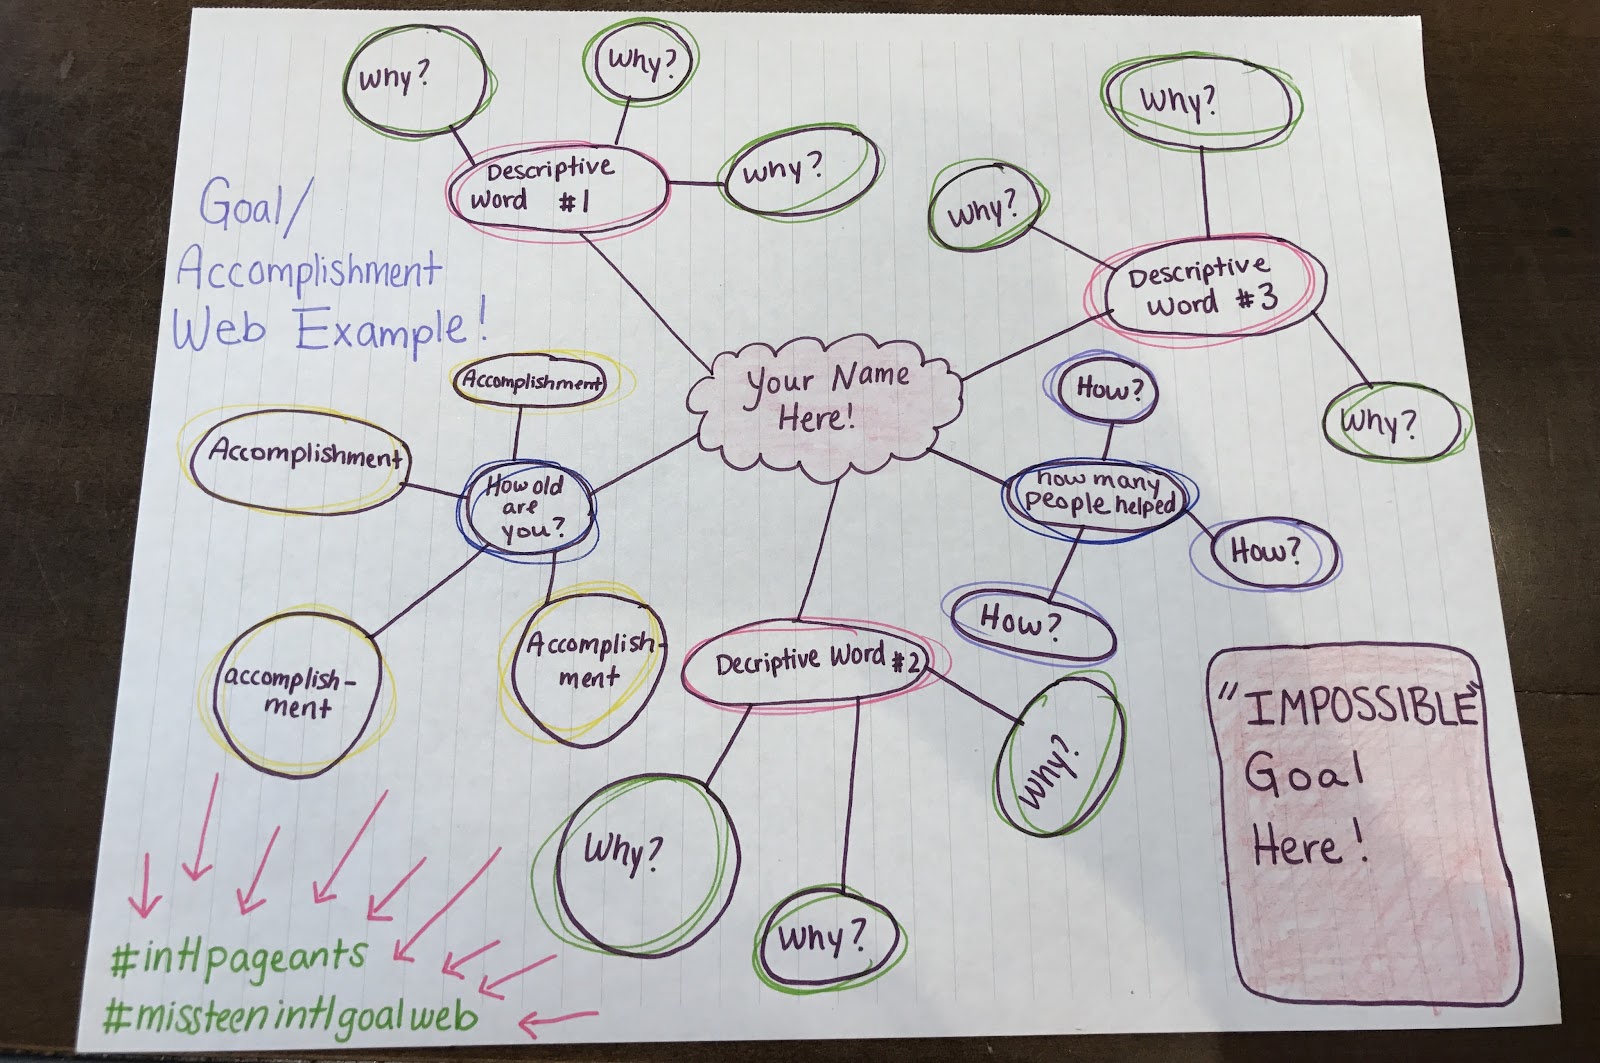 Goal/
Accomplishment
Web Example!
Why?
Why?
Why?
Descriptive
Word #1
Why?
Why?
Why?
Descriptive
Word #3
Your Name
Here!
Accomplishment
Accomplishment
How old
are
you?
accomplish-
ment
Accomplish-
ment
How?
how many
people helped
How?
How?
Decriptive Word #2
Why?
Why?
Why?
"IMPOSSIBLE"
Goal
Here!
#intlpageants
#missteenintlgoalweb